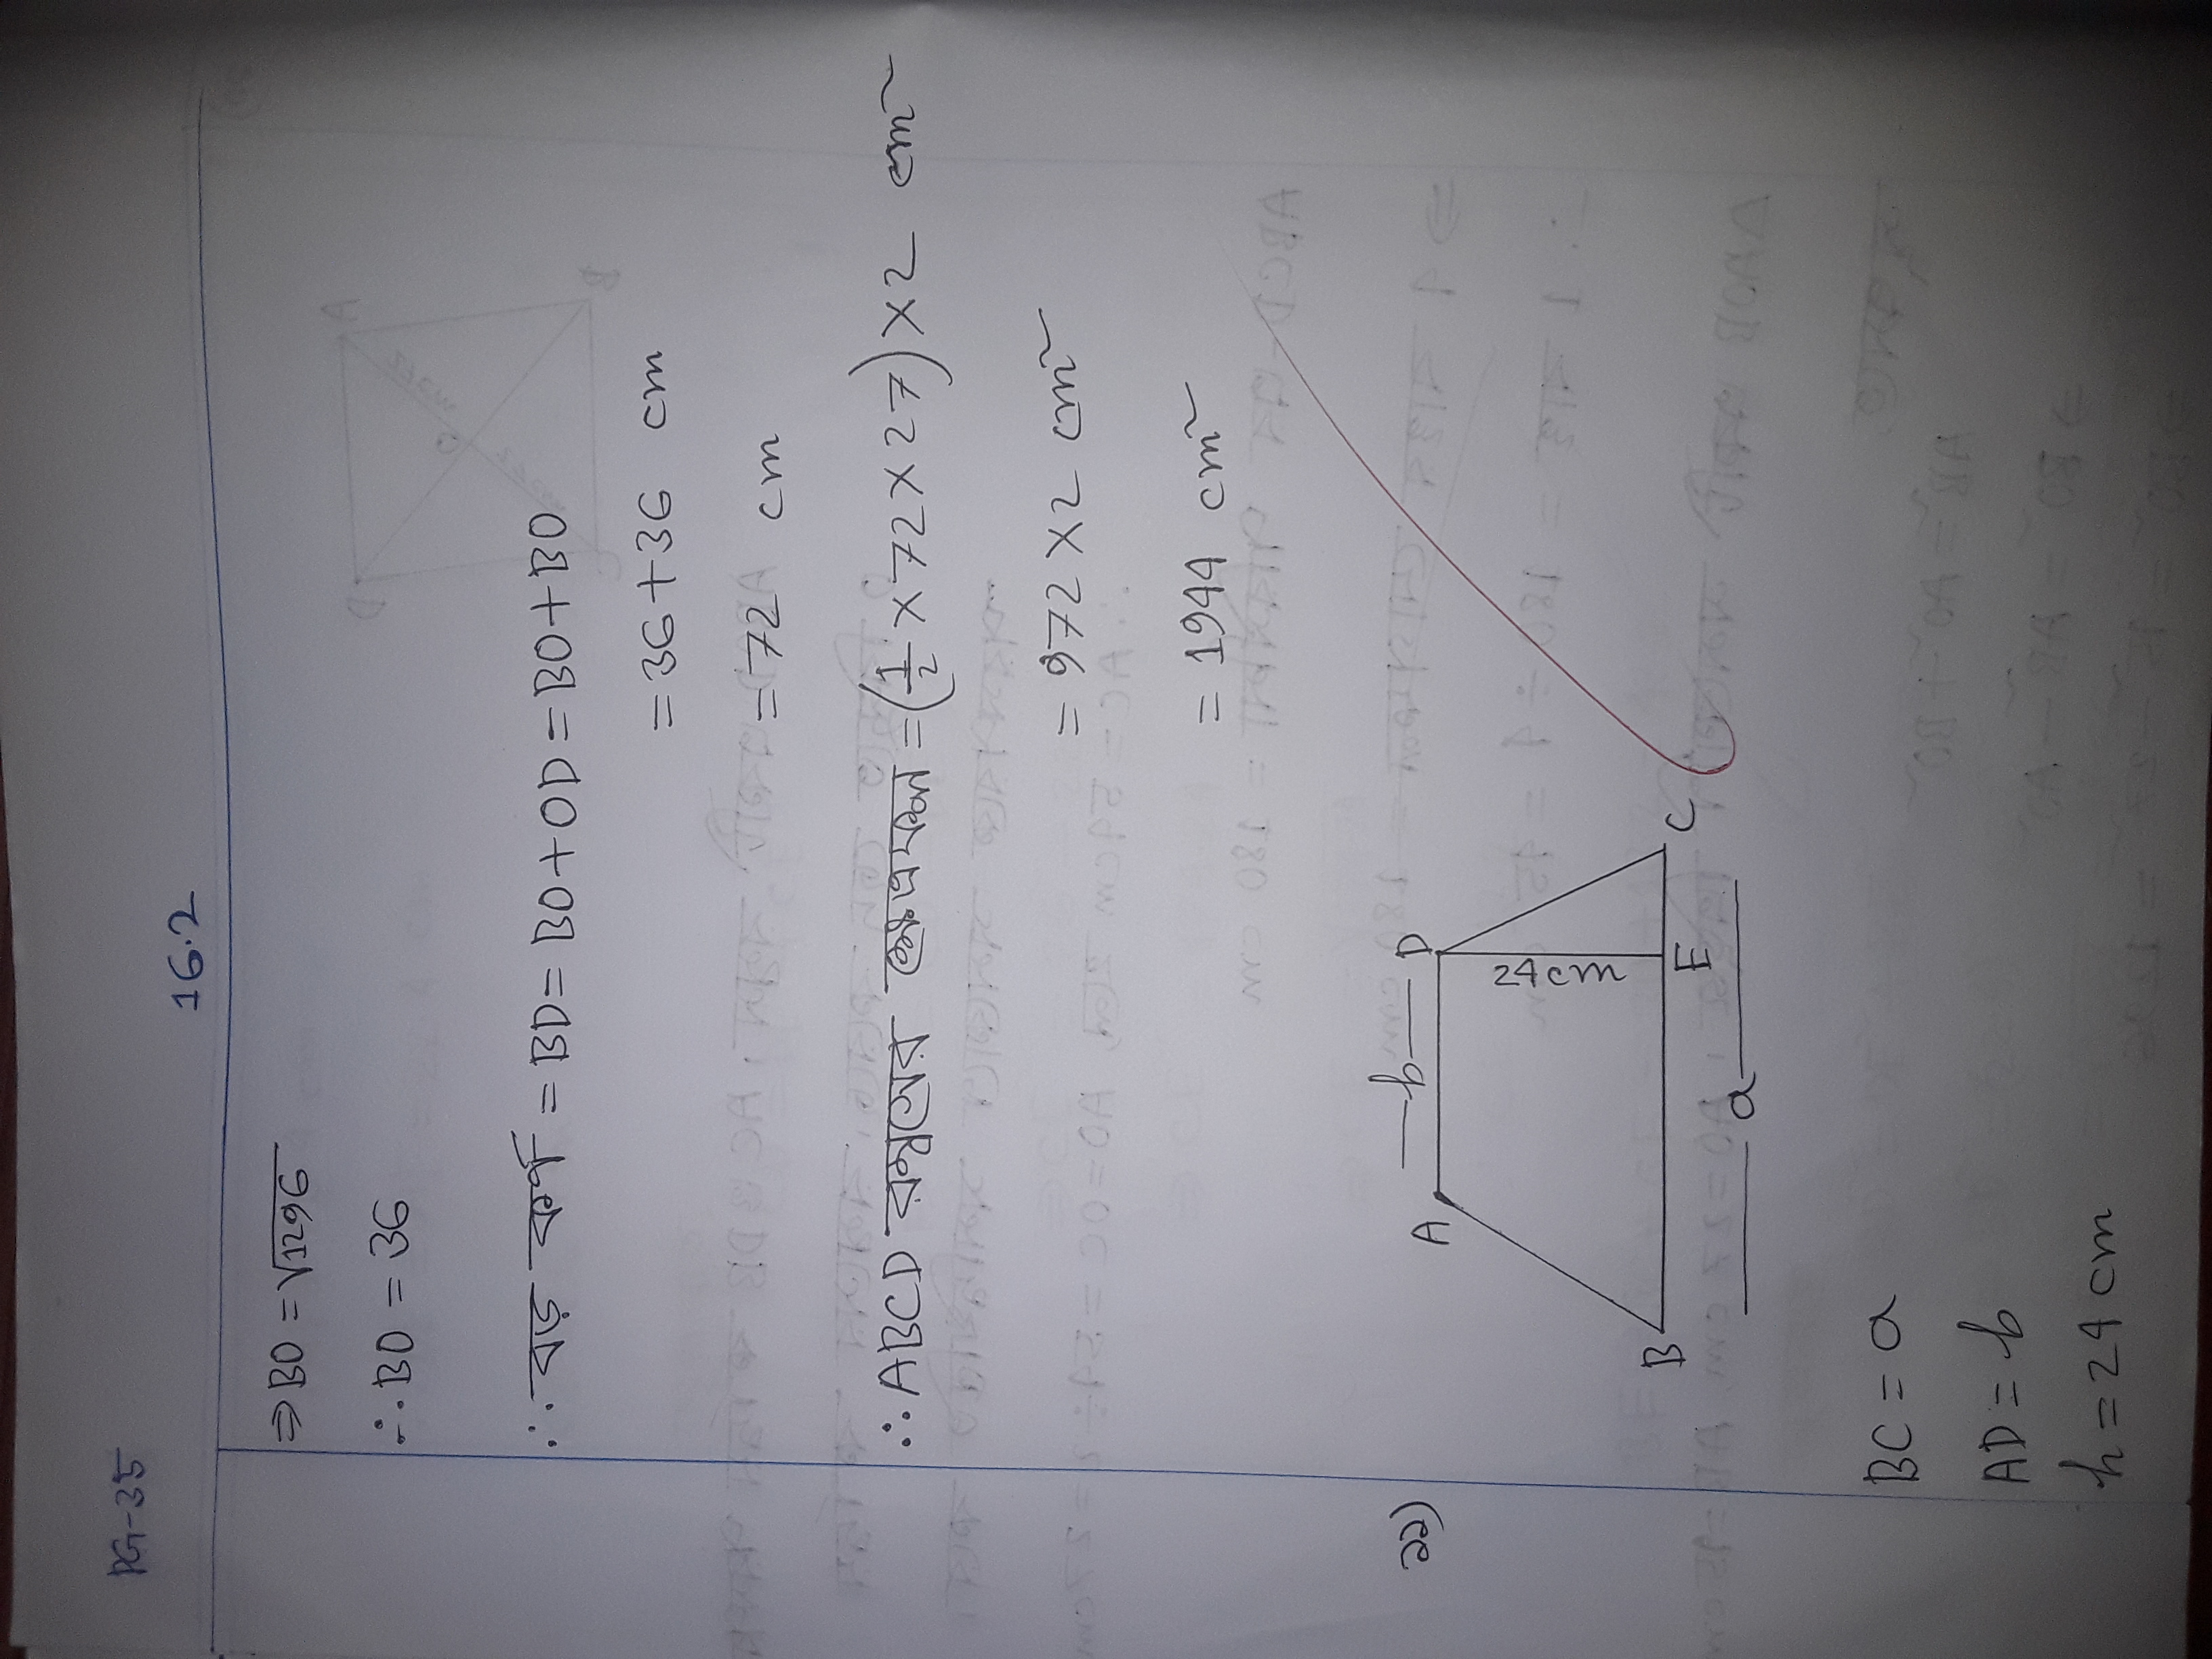 PG-35
16.2
⇒ BO = √1296
∴ BO = 36
∴ বড় কর্ণ = BD = BO + OD = BO + BO
= 36 + 36 cm
= 72 cm
∴ ABCD রম্বসের ক্ষেত্রফল = (1/2 × 72 × 27) × 2 cm²
= 972 × 2 cm²
= 1944 cm²
২২)
b
A D
24cm
B E C
a
BC = a
AD = b
h = 24 cm